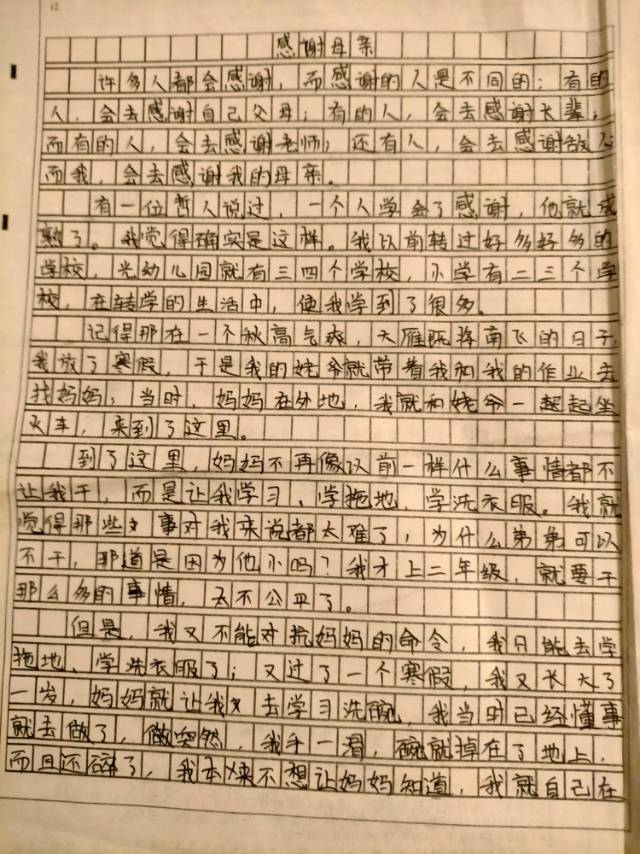 12
感谢母亲
许多人都会感谢，而感谢的人是不同的；有的
人，会去感谢自己父母；有的人，会去感谢长辈；
而有的人，会去感谢老师；还有人，会去感谢敌人
而我，会去感谢我的母亲。
有一位哲人说过，一个人学会了感谢，他就成
熟了。我觉得确实是这样。我以前转过好多好多的
学校，光幼儿园就有三四个学校，小学有二三个学
校，在转学的生活中，使我学到了很多。
记得那在一个秋高气爽，大雁既将南飞的日子，
我放了寒假，于是我的姥爷就带着我和我的作业去
找妈妈；当时，妈妈在外地，我就和姥爷一起起坐
火车，来到了这里。
到了这里，妈妈不再像以前一样什么事情都不
让我干，而是让我学习、学拖地、学洗衣服。我就
觉得那些事对我来说都太难了，为什么弟弟可以
不干，那道是因为他小吗？我才上二年级，就要干
那么多的事情，太不公平了。
但是，我又不能对抗妈妈的命令，我只能去学
拖地、学洗衣服了；又过了一个寒假，我又长大了
一岁，妈妈就让我去学习洗碗，我当时已经懂事
就去做了，做突然，我手一滑，碗就掉在了地上，
而且还碎了，我本来不想让妈妈知道，我就自己在